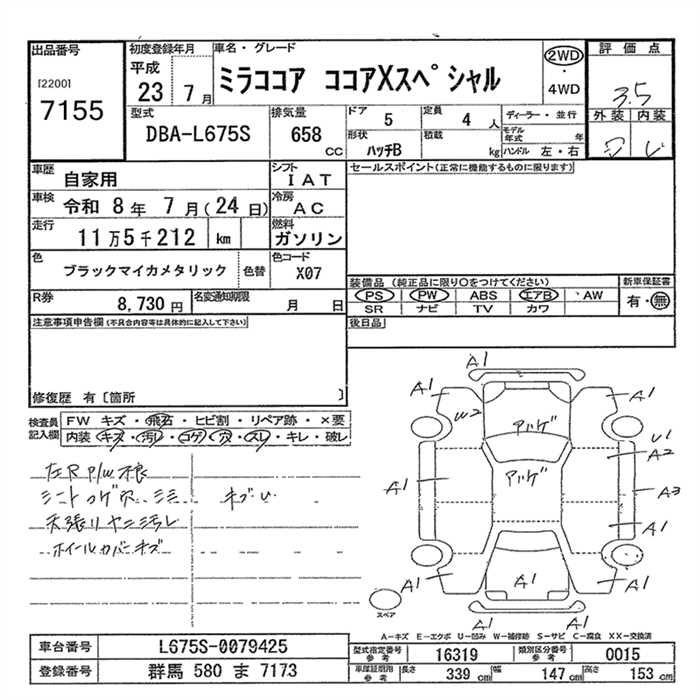 出品番号
[2200]
7155
初度登録年月
平成
23 7月
車名・グレード
ミラココア ココアXスペシャル
2WD
・
4WD
評価点
3.5
外装 内装
型式
DBA-L675S
排気量
658 CC
ドア 5
定員 4 人
形状 ハッチB
積載 kg
ディーラー・並行
モデル年式 年
ハンドル 左・右
車歴 自家用
シフト IAT
車検 令和 8年 7月(24日)
冷房 AC
走行 11万5千212 km
燃料 ガソリン
色 ブラックマイカメタリック 色替
色コード X07
R券 8,730円
名変通知期限 月 日
セールスポイント(正常に機能するものに限ります)
装備品(純正品に限り○をつけてください)
PS PW ABS エアB AW
SR ナビ TV カワ
新車保証書
有・無
後日品
注意事項申告欄(不具合内容等は具体的に記入して下さい)
修復歴 有〔箇所 〕
検査員記入欄
FW キズ・飛石・ヒビ割・リペア跡・×要
内装・キズ・汚レ・コゲ・穴・スレ・キレ・破レ
左R P/W不良
シートコゲ穴、シミ
天張リヤニ汚レ
ホイールカバーキズ
A1
A1
W2
A1
アハゲ
アハゲ
U1
A2
A1
A3
A1
A1
A1
A1
A1
スペア
A−キズ E−エクボ U−凹み W−補修跡 S−サビ C−腐食 XX−交換済
車台番号 L675S-0079425
登録番号 群馬 580 ま 7173
型式指定番号 参考 16319
類別区分番号 参考 0015
車庫証明用 参考 長さ 339cm 幅 147cm 高さ 153cm